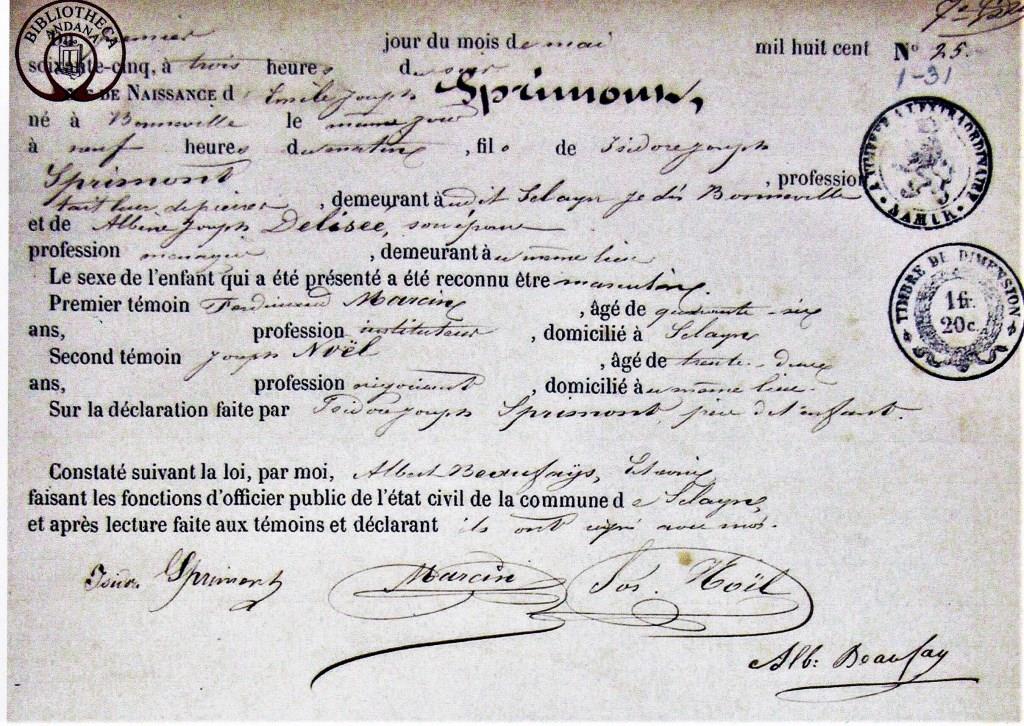 BIBLIOTHECA ANDANA
premier jour du mois de mai mil huit cent N° 25
soixante-cinq, à trois heures du soir
1-31
DE NAISSANCE d'Emile Joseph Sprimont,
né à Bonneville le même jour
à neuf heures du matin, fils de Isidore Joseph
Sprimont, profession
tailleur de pierres, demeurant à udit Selayn Bonneville
et de Albine Joseph Delisée, son épouse
profession menagère, demeurant à u même lieu
Le sexe de l'enfant qui a été présenté a été reconnu être masculin.
Premier témoin Ferdinand Marcin, âgé de quarante-six
ans, profession instituteur, domicilié à Selayn
Second témoin Joseph Noël, âgé de trente-deux
ans, profession négociant, domicilié à u même lieu.
Sur la déclaration faite par Isidore Joseph Sprimont, père de l'enfant.
Constaté suivant la loi, par moi, Albert Beaufays, Echevin
faisant les fonctions d'officier public de l'état civil de la commune de Selayn,
et après lecture faite aux témoins et déclarant ils ont signé avec moi.
Isidore Sprimont Marcin Jos. Noël
Alb: Beaufay
TIMBRE A L'EXTRAORDINAIRE
NAMUR
TIMBRE DE DIMENSION
1 fr.
20 c.